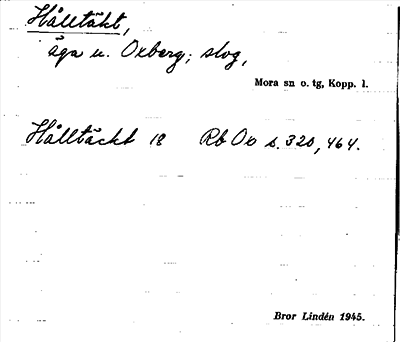 Hålltäkt,
äga u. Oxberg; slog,
Mora sn o. tg, Kopp. l.
Hålltäckt 18 Rb Oo s. 320, 464.
Bror Lindén 1945.